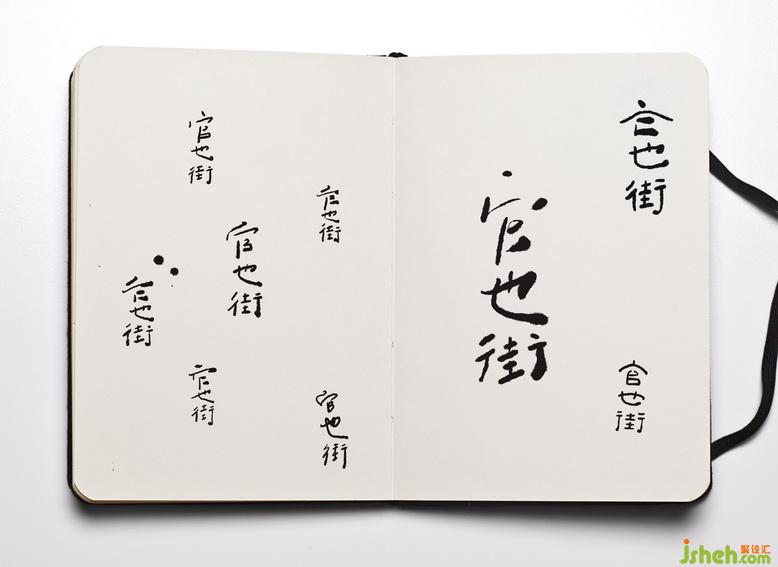 官也街
官也街
官也街
官也街
官也街
官也街
官也街
官也街
官也街
聚设汇
jsheh.com